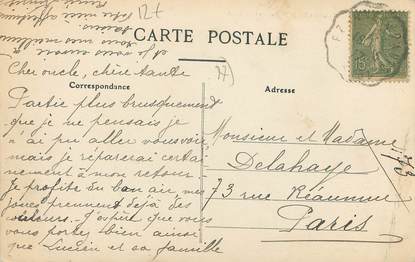 CARTE POSTALE
Correspondance
Adresse
Cher oncle, chère tante
Partie plus brusquement
que je ne pensais je
n'ai pu aller vous voir,
mais je réparerai certai
nement à mon retour.
Je profite du bon air, mes
joues prennent déjà des
couleurs. J'espère que vous
vous portez bien ainsi
que Lucien et sa famille
et je vous envoie
tous mes meilleurs
baisers
Votre nièce
Monsieur et Madame
Delahaye
73 rue Réaumur
Paris
15
12f